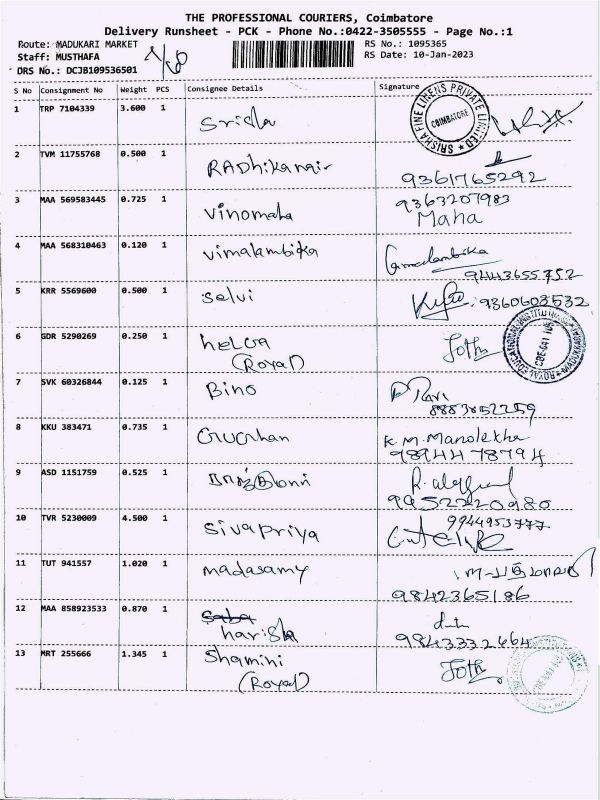 THE PROFESSIONAL COURIERS, Coimbatore
Delivery Runsheet - PCK - Phone No.:0422-3505555 - Page No.:1
Route: MADUKARI MARKET RS No.: 1095365
Staff: MUSTHAFA RS Date: 10-Jan-2023
DRS No.: DCJB109536501
S No Consignment No Weight PCS Consignee Details Signature
1 TRP 7104339 3.600 1 SRISHA FINE LINENS PRIVATE LIMITED COIMBATORE
2 TVM 11755768 0.500 1 RADhikanair
9361765292
3 MAA 569583445 0.725 1 Vinomaha 9363207983
Maha
4 MAA 568310463 0.120 1 Vimalambika
9443655752
5 KRR 5569600 0.500 1 Selvi 9360603532
6 GDR 5290269 0.250 1
(Royal)
7 SVK 60326844 0.125 1 Bino
8883852259
8 KKU 383471 0.735 1 K.M. Manolekha
9894478794
9 ASD 1151759 0.525 1
9952220980
10 TVR 5230009 4.500 1 Sivapriya 9944953777
11 TUT 941557 1.020 1 madasamy
9842365186
12 MAA 858923533 0.870 1 Saba
harish 9843332664
13 MRT 255666 1.345 1 Shamini
(Royal)